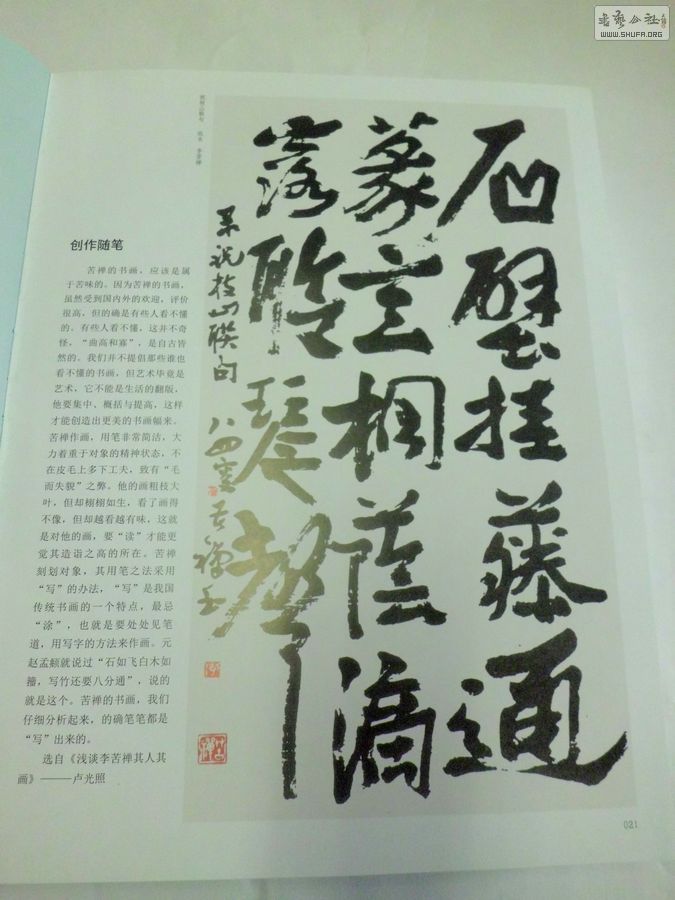 書藝公社
WWW.SHUFA.ORG
石壁挂藤通
篆意桐蔭滴
露聆琴聲
录祝枝山联句 八四叟苦禅书
创作随笔
苦禅的书画,应该是属
于苦味的。因为苦禅的书画,
虽然受到国内外的欢迎,评价
很高,但的确是有些人看不懂
的。有些人看不懂,这并不奇
怪,“曲高和寡”,是自古皆
然的。我们并不提倡那些谁也
看不懂的书画,但艺术毕竟是
艺术,它不能是生活的翻版,
他要集中、概括与提高,这样
才能创造出更美的书画幅来。
苦禅作画,用笔非常简洁,大
力着重于对象的精神状态,不
在皮毛上多下工夫,致有“毛
而失貌”之弊。他的画粗枝大
叶,但却栩栩如生,看了画得
不像,但却越看越有味,这就
是对他的画,要“读”才能更
觉其造诣之高的所在。苦禅
刻划对象,其用笔之法采用
“写”的办法,“写”是我国
传统书画的一个特点,最忌
“涂”,也就是要处处见笔
道,用写字的方法来作画。元
赵孟頫就说过“石如飞白木如
籀,写竹还要八分通”,说的
就是这个。苦禅的书画,我们
仔细分析起来,的确笔笔都是
“写”出来的。
选自《浅谈李苦禅其人其
画》———卢光照
021